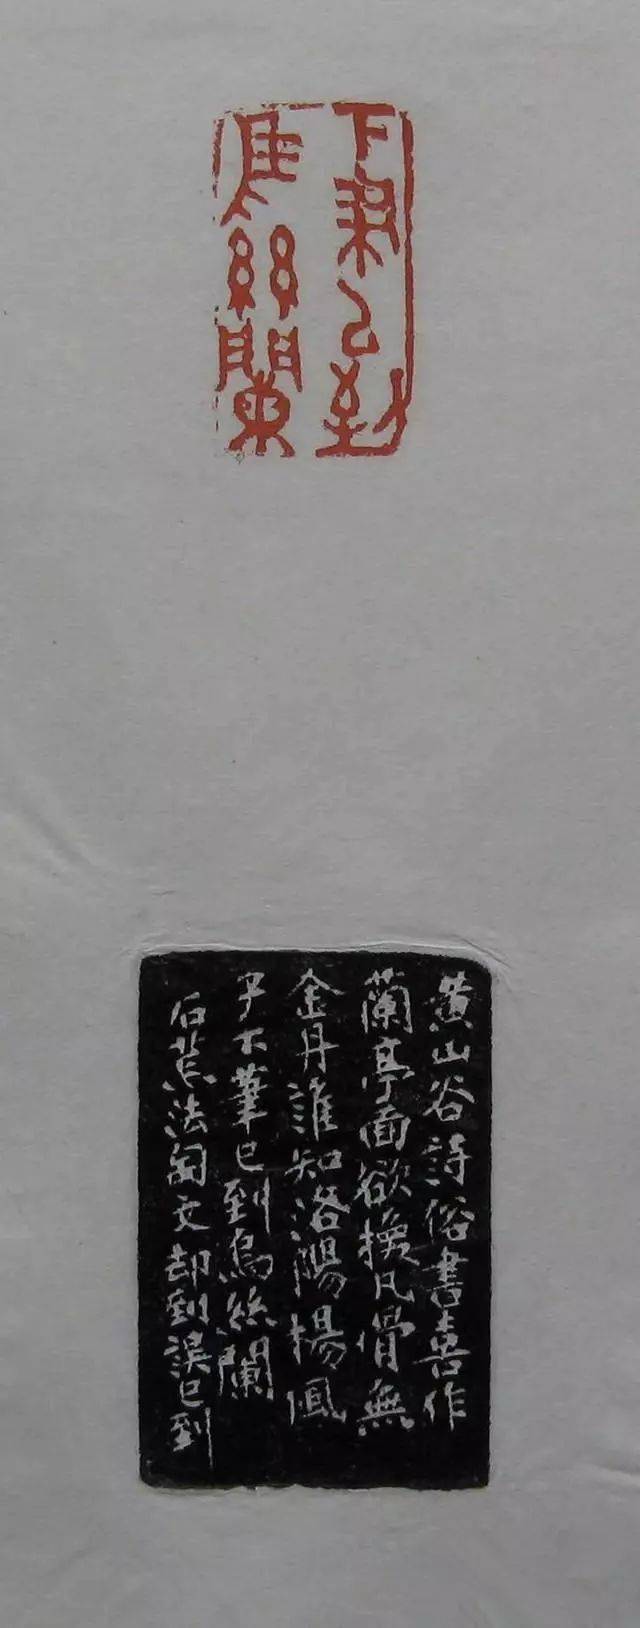 下筆已到
烏絲闌
黃山谷詩俗書喜作
蘭亭面欲換凡骨無
金丹誰知洛陽楊風
子下筆已到烏絲闌
法匋文却到誤已到